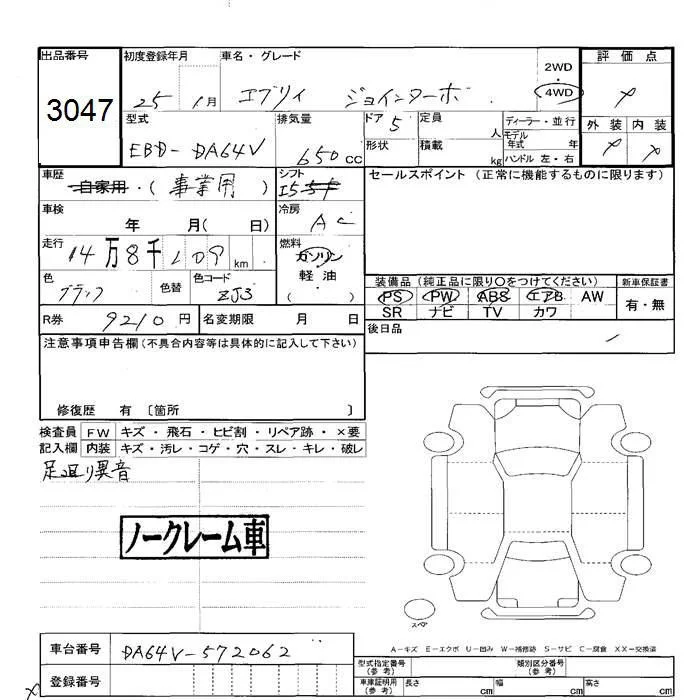 出品番号 初度登録年月 車名・グレード 2WD ・ 4WD 評価点
3047 25 1月 エブリイ ジョインターボ
型式 排気量 ドア 5 定員 人 ディーラー・並行 外装 内装
EBD-DA64V 650 cc 形状 積載 kg モデル年式 年 ハンドル 左・右
車歴 自家用・(事業用) シフト I5 5F セールスポイント (正常に機能するものに限ります)
車検 年 月( 日) 冷房 AC
走行 14万8千109km 燃料 ガソリン 軽油 ( )
色 ブラック 色替 色コード ZJ3 装備品 (純正品に限り○をつけてください) 新車保証書
PS PW ABS エアB AW 有・無
SR ナビ TV カワ
R券 9210円 名変期限 月 日 後日品
注意事項申告欄(不具合内容等は具体的に記入して下さい)
修復歴 有 〔箇所 〕
検査員 FW キズ・飛石・ヒビ割・リペア跡・×要
記入欄 内装 キズ・汚レ・コゲ・穴・スレ・キレ・破レ
足廻り異音
ノークレーム車
スペア
A-キズ E-エクボ U-凹み W-補修跡 S-サビ C-腐食 XX-交換済
車台番号 DA64V-572062 型式指定番号(参考) 類別区分番号(参考)
登録番号 車庫証明用(参考) 長さ cm 幅 cm 高さ cm